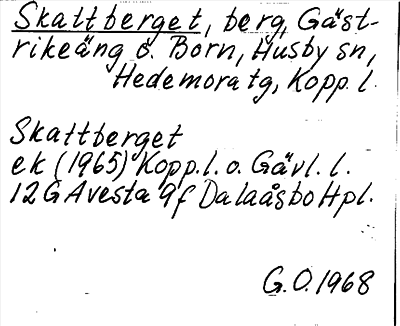 Skattberget, berg, Gäst-
rikeäng o. Born, Husby sn,
Hedemora tg, Kopp. l.
Skattberget
ek (1965) Kopp. l. o. Gävl. l.
12 G Avesta 9f Dalaåsbo Hpl.
G.O. 1968